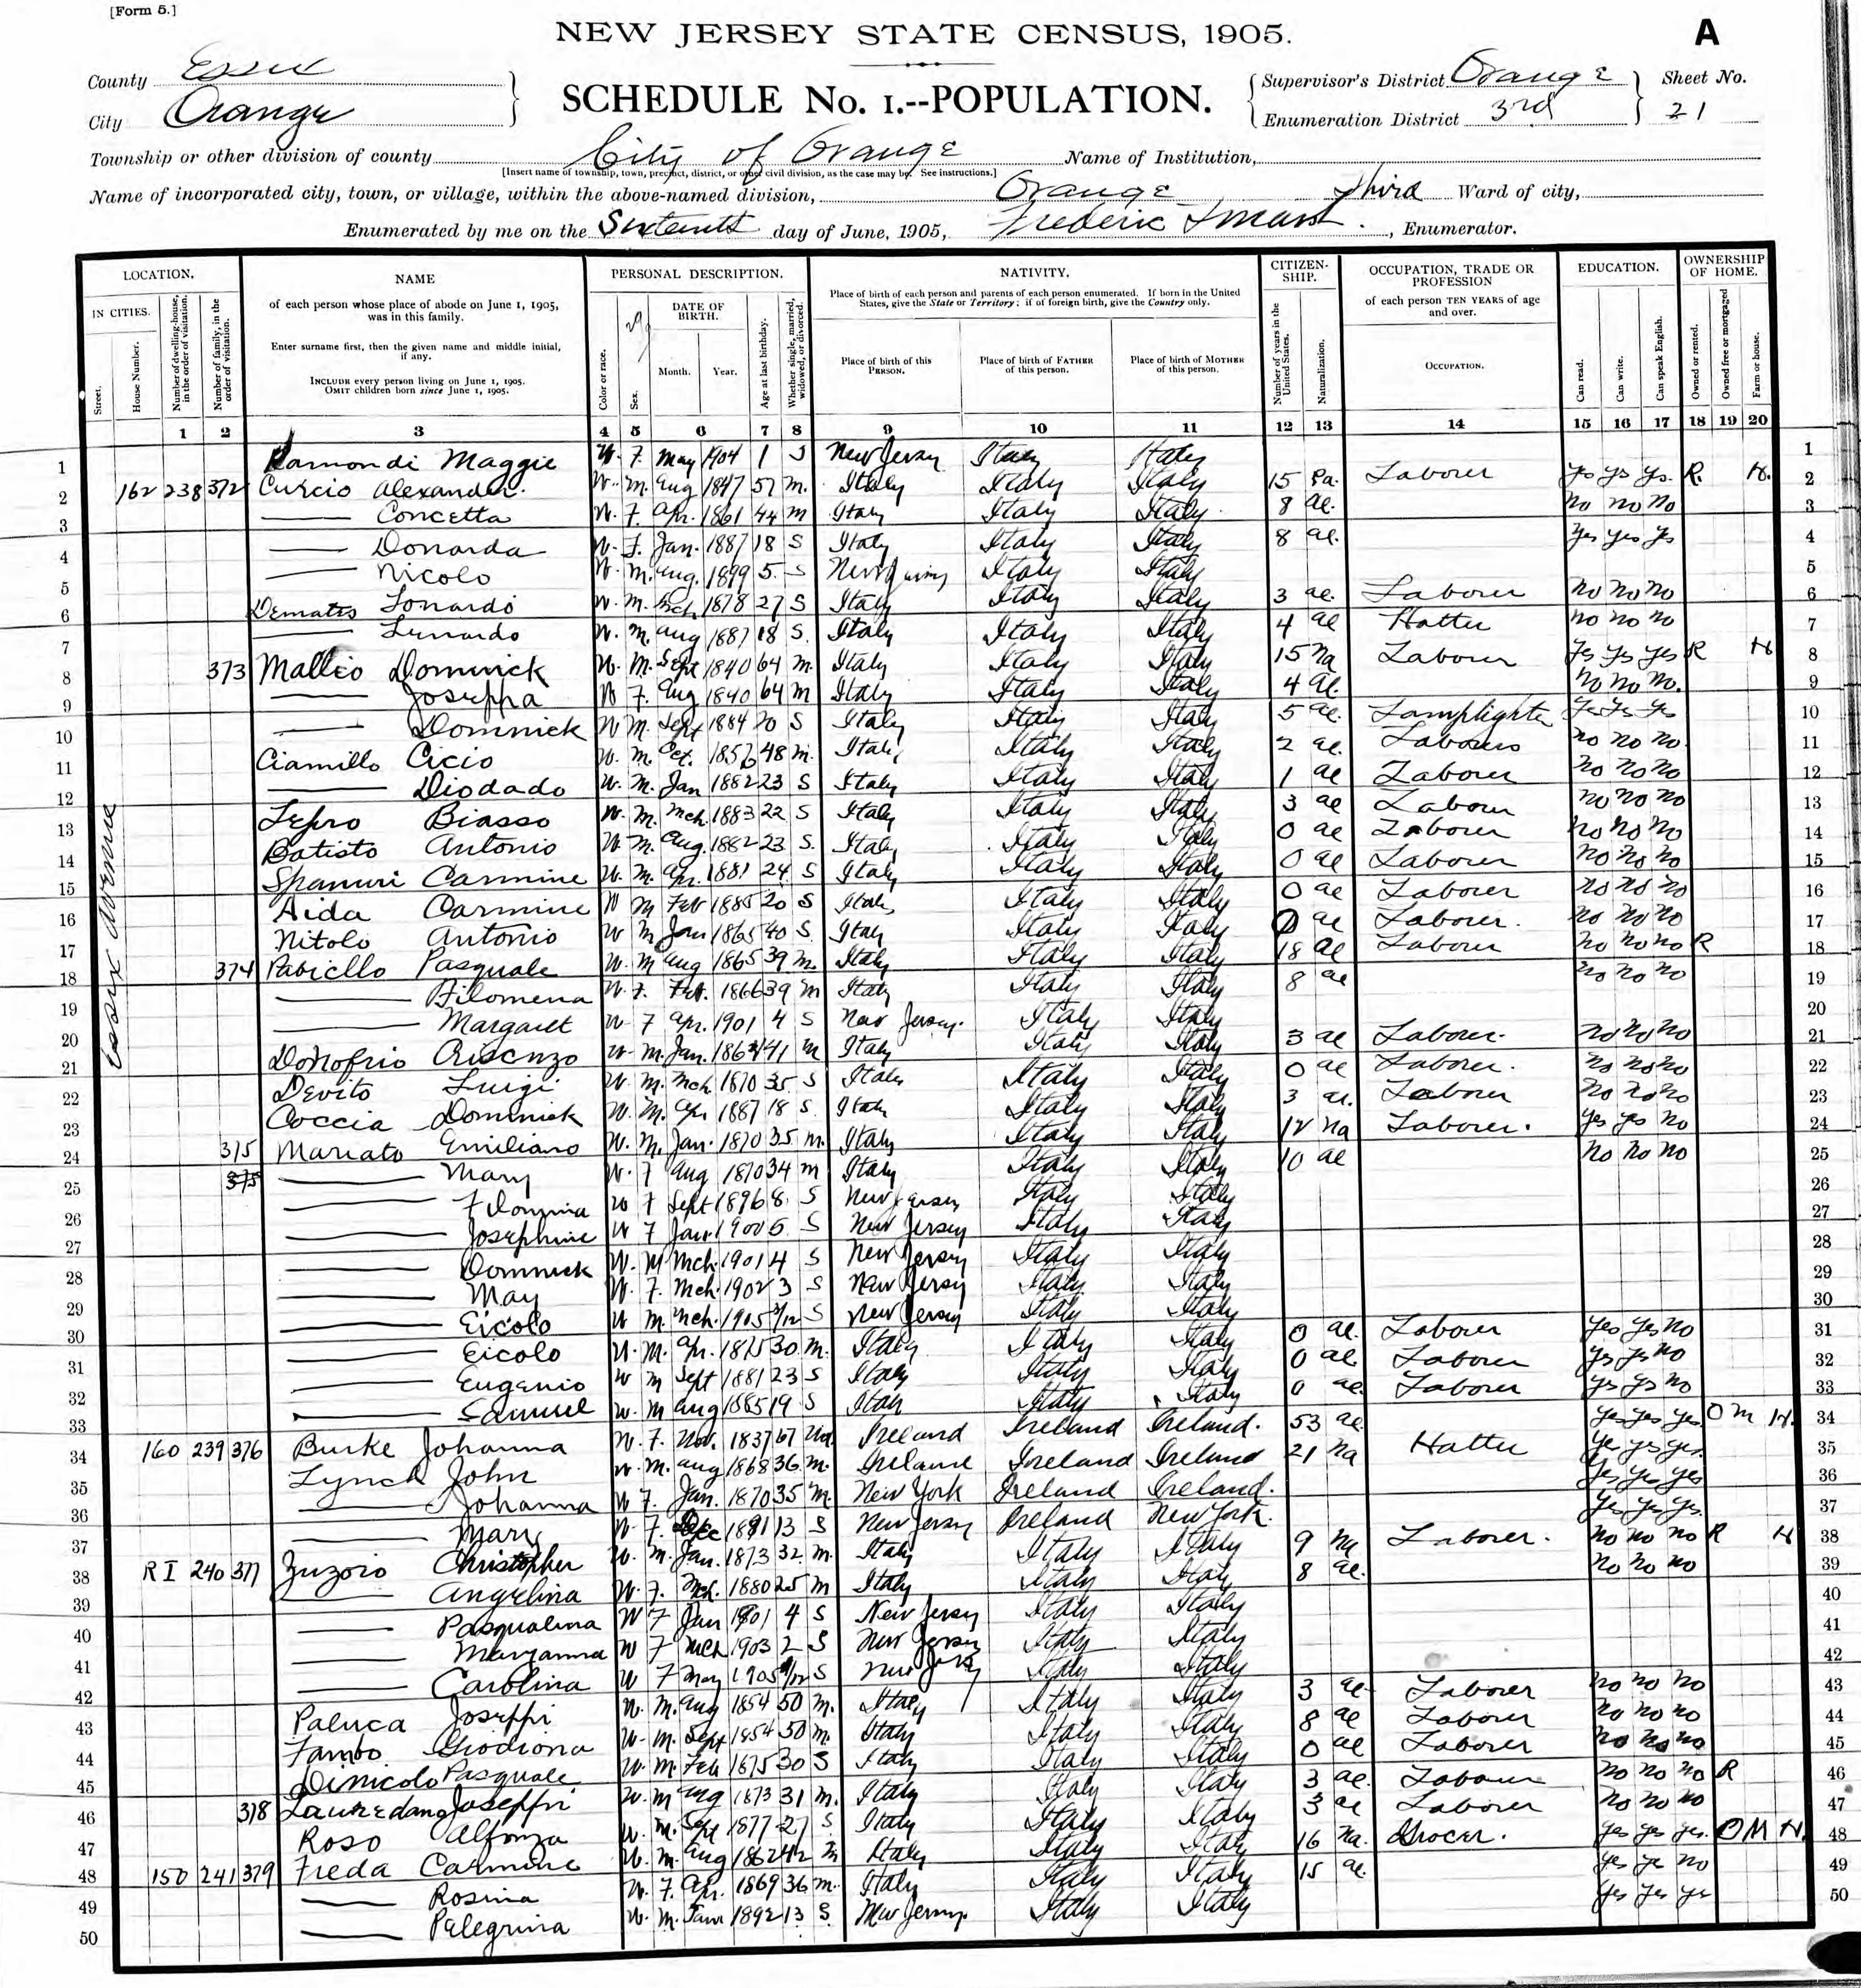 [Form 5.]
NEW JERSEY STATE CENSUS, 1905.
A
County Essex
City Orange
SCHEDULE No. 1.--POPULATION.
Supervisor's District Orange
Enumeration District 3rd
Sheet No.
21
Township or other division of county City of Orange Name of Institution,
[Insert name of township, town, precinct, district, or other civil division, as the case may be. See instructions.]
Name of incorporated city, town, or village, within the above-named division, Orange Third Ward of city,
Enumerated by me on the Sixteenth day of June, 1905, Frederic , Enumerator.
LOCATION. NAME PERSONAL DESCRIPTION. NATIVITY. CITIZEN-SHIP. OCCUPATION, TRADE OR PROFESSION EDUCATION. OWNERSHIP OF HOME.
IN CITIES.
Street.
House Number.
Number of dwelling-house, in the order of visitation.
Number of family, in the order of visitation.
of each person whose place of abode on June 1, 1905, was in this family.
Enter surname first, then the given name and middle initial, if any.
INCLUDE every person living on June 1, 1905.
OMIT children born since June 1, 1905.
Color or race.
Sex.
DATE OF BIRTH.
Month. Year.
Age at last birthday.
Whether single, married, widowed, or divorced.
Place of birth of each person and parents of each person enumerated. If born in the United States, give the State or Territory; if of foreign birth, give the Country only.
Place of birth of this PERSON.
Place of birth of FATHER of this person.
Place of birth of MOTHER of this person.
Number of years in the United States.
Naturalization.
of each person TEN YEARS of age and over.
OCCUPATION.
Can read.
Can write.
Can speak English.
Owned or rented.
Owned free or mortgaged
Farm or house.
1 2 3 4 5 6 7 8 9 10 11 12 13 14 15 16 17 18 19 20
Essex Avenue
1 Ramondi Maggie W. F. May 1904 1 S New Jersey Italy Italy 1
2 162 238 372 Curcio Alexander. W. M. Aug 1847 57 m. Italy Italy Italy 15 Pa. Laborer Yes Yes Yes. R. H. 2
3 Concetta W. F. Apr. 1861 44 m Italy Italy Italy 8 al. No No No 3
4 Donarda W. F. Jan. 1887 18 S Italy Italy Italy 8 al. Yes Yes Yes 4
5 Nicolo W. M. Aug. 1899 5 S New Jersey Italy Italy 5
6 Lonardo W. M. Mch. 1878 27 S Italy Italy Italy 3 al. Laborer No No No 6
7 W. M. Aug 1887 18 S. Italy Italy Italy 4 al Hatter No No No 7
8 373 Malleo Dominick W. M. Sept 1840 64 m. Italy Italy Italy 15 Na Laborer Yes Yes Yes R H 8
9 Joseppa W F. Aug 1840 64 m Italy Italy Italy 4 al. No No No. 9
10 Dominick W M. Sept 1884 20 S Italy Italy Italy 5 al. Lamplighter Yes Yes Yes 10
11 Ciamillo Cicio W. M. Oct. 48 m. Italy Italy Italy 2 al. Laborer No No No 11
12 Diodado W. M. Jan 1882 23 S Italy Italy Italy 1 al Laborer No No No 12
13 Biasso W. M. Mch. 1883 22 S Italy Italy Italy 3 al Laborer No No No 13
14 Batisto Antonio W. M. Aug. 1882 23 S. Italy Italy Italy 0 al Laborer No No No 14
15 Carmine W. M. Apr. 1881 24 S Italy Italy Italy 0 al Laborer No No No 15
16 Aida Carmine W M Feb 1885 20 S Italy Italy Italy 0 al Laborer No No No 16
17 Nitolo Antonio W M Jan 1865 40 S. Italy Italy Italy 0 al Laborer. No No No 17
18 374 Pabiello Pasquale W. M Aug 1865 39 m. Italy Italy Italy 18 al Laborer No No No R 18
19 Filomena W. F. Feb. 1866 39 m Italy Italy Italy 8 al No No No 19
20 Margaret W F Apr. 1901 4 S New Jersey. Italy Italy 20
21 Donofrio W. M. Jan. 41 m Italy Italy Italy 3 al Laborer. No No No 21
22 Devito Luigi W. M. Mch 1870 35 S Italy Italy Italy 0 al Laborer. No No No 22
23 Coccia Dominick W. M. Apr 1887 18 S. Italy Italy Italy 3 al. Laborer No No No 23
24 375 Mariato Emiliano W. M. Jan. 1870 35 m. Italy Italy Italy 12 Na Laborer. Yes Yes No 24
25 375 Mary W. F Aug 1870 34 m Italy Italy Italy 10 al No No No 25
26 Filomina W F Sept 1896 8 S New Jersey Italy Italy 26
27 Josephine W F Jan 1900 5 S New Jersey Italy Italy 27
28 Dominick W. M Mch. 1901 4 S New Jersey Italy Italy 28
29 May W. F. Mch. 1902 3 S New Jersey Italy Italy 29
30 Eicolo W M. Mch. 1905 S New Jersey Italy Italy 30
31 Eicolo W. M. Apr. 1875 30 m. Italy Italy Italy 0 al. Laborer Yes Yes No 31
32 Eugenio W M Sept 1881 23 S Italy Italy Italy 0 al. Laborer Yes Yes No 32
33 Samuel W. M Aug 1885 19 S Italy Italy Italy 0 al. Laborer Yes Yes No 33
34 160 239 376 Burke Johanna W. F. Nov. 1837 67 Wd. Ireland Ireland Ireland. 53 al. Yes Yes Yes O M H. 34
35 Lynch John W. M. Aug 1868 36 m. Ireland Ireland Ireland 21 Na Hatter Yes Yes Yes. 35
36 Johanna W F. Jan. 1870 35 m. New York Ireland Ireland. Yes Yes Yes 36
37 Mary W. F. Dec 1891 13 S New Jersey Ireland New York. Yes Yes Yes. 37
38 R I 240 377 Zuzoio Christopher W. M. Jan. 1873 32 m. Italy Italy Italy 9 Na Laborer. No No No R H 38
39 Angelina W. F. Mch. 1880 25 m Italy Italy Italy 8 al. No No No 39
40 Pasqualina W F Jan 1901 4 S New Jersey Italy Italy 40
41 Maryanna W F Mch 1903 2 S New Jersey Italy Italy 41
42 Carolina W F May 1905 S New Jersey Italy Italy 42
43 Paluca Joseppi W. M. Aug 1854 50 m. Italy Italy Italy 3 al Laborer No No No 43
44 W. M. Sept 1854 50 m. Italy Italy Italy 8 al Laborer No No No 44
45 Dinicolo Pasquale W. M. Feb 1875 30 S Italy Italy Italy 0 al Laborer No No No 45
46 378 Joseppi W. M Aug 1873 31 m. Italy Italy Italy 3 al. Laborer No No No R 46
47 Roso Alfonza W. M. Sept 1877 27 S Italy Italy Italy 3 al Laborer No No No 47
48 150 241 379 Freda Carmine W. M. Aug 1862 42 m Italy Italy Italy 16 Na. Grocer. Yes Yes Yes. O M H. 48
49 Rosina W. F. Apr. 1869 36 m. Italy Italy Italy 15 al. Yes Ye No 49
50 Pelegrina W. M. Jan 1892 13 S. New Jersey. Italy Italy Yes Yes Ye 50